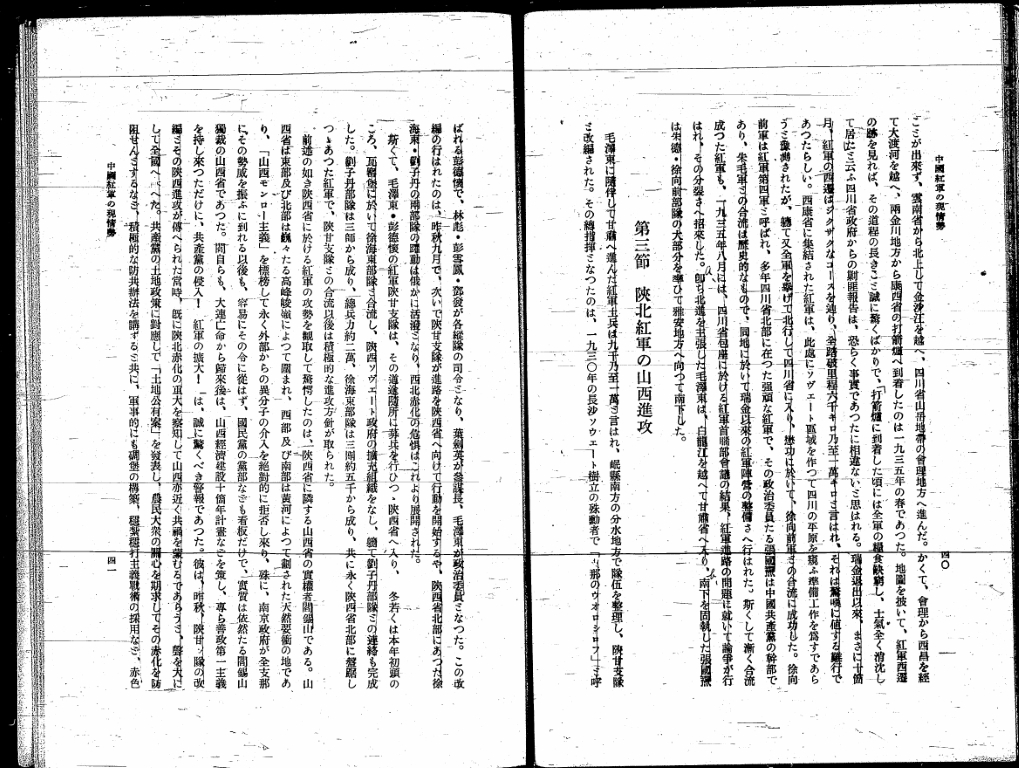 中國紅軍の現情勢
四〇
ことが出來ず、雲南省から北上して金沙江を越へ、四川省山岳地帶の會理地方へ進んだ。かくて、會理から西昌を經
て大渡河を越へ、兩金川地方から康西省の打箭爐へ到着したのは一九三五年の春であつた。地圖を披いて、紅軍西遷
の跡を見れば、その道程の長きこと誠に驚くばかりで、「打箭爐に到着した頃には全軍の糧食缺窮し、士氣全く沮沈し
て居た」と云ふ四川省政府からの剿匪報告は、恐らく事實であつたに相違ないと思はれる。瑞金退出以來、まさに十箇
月、紅軍の西遷はジグザグなコースを辿り、全踏破里程六千キロ乃至一萬キロと言はれ、それは驚嘆に値する難行で
あつたらしい。西康省に集結された紅軍は、此處にソヴエート區域を作つて四川の平原を窺ふ準備工作を爲すであら
うと豫測されたが、纏て又全軍を擧げて北行して四川省に入り、懋功に於いて、徐向前軍との合流に成功した。徐向
前軍は紅軍第四軍と呼ばれ、多年四川省北部に在つた强頑な紅軍で、その政治委員たる張國燾は中國共產黨の幹部で
あり、朱毛軍との合流は歷史的なもので、同地に於いて瑞金以來の紅軍陣營の整備さへ行はれた。斯くして漸く合流
成つた紅軍も、一九三五年八月には、四川省包座に於ける紅軍首腦部會議の結果、紅軍進路の問題に就いて論爭が行
はれ、その分裂さへ招來した。卽ち北進を主張した毛澤東は、白龍江を越へて甘肅省へ入り、南下を固執した張國燾
は朱德・徐向前部隊の大部分を率ひて雅安地方へ向つて南下した。
第三節 陝北紅軍の山西進攻
毛澤東に隨伴して甘肅へ進んだ紅軍士兵は九千乃至一萬と言はれ、岷縣南方の分水地方で隊伍を整理し、陝甘支隊
と改編された。その總指揮となつたのは、一九三〇年の長沙ソヴエート樹立の殊勳者で「支那のウオロシロフ」と呼
ばれる彭德懷で、林彪・彭雪鳳・鄧發が各縱隊の司令となり、葉劍英が參謀長、毛澤東が政治委員となつた。この改
編の行はれたのは、昨秋九月で、次いで陝甘支隊が進路を陝西省へ向けて行動を開始するや、陝西省北部にあつた徐
海東・劉子丹の兩部隊の躍動は俄かに活潑となり、西北赤化の危惧はこれより展開された。
斯くて、毛澤東・彭德懷の紅軍陝甘支隊は、その道途隨所に募兵を行ひつゝ陝西省へ入り、冬若くは本年初頭の
ころ、瓦窰堡に於いて徐海東部隊と合流し、陝西ソヴエート政府の擴充組織をなし、纏て劉子丹部隊との連絡も完成
した。劉子丹部隊は三師から成り、總兵力約二萬、徐海東部隊は三團約五千から成り、共に永く陝西省北部に盤踞し
つゝあつた紅軍で、陝甘支隊との合流以後は積極的な進攻方針が取られた。
前述の如き陝西省に於ける紅軍の攻勢を觀取して驚愕したのは、陝西省に隣する山西省の實權者閻錫山である。山
西省は東部及び北部は巍々たる高峰峻嶺によつて圍まれ、西部及び南部は黃河によつて劃された天然要衝の地であ
り、「山西モンロー主義」を標榜して永く外部からの異分子の介入を絕對的に拒否し來り、殊に、南京政府が全支那
にその勢威を振ふに到れる以後も、容易にその令に從はず、國民黨の黨部なども看板だけで、實質は依然たる閻錫山
獨裁の山西省であつた。閻自らも、大連亡命から歸來後は、山西經濟建設十箇年計畫などを策し、專ら善政第一主義
を持し來つただけに、共產黨の侵入！ 紅軍の擴大！ は、誠に驚くべき警報であつた。彼は、昨秋、陝甘支隊の改
編とその陝西進攻が傳へられた當時、旣に陝北赤化の重大を察知して山西亦近く共禍を蒙むるであらうと、聲を大に
して全國へ述べた。共產黨の土地政策に對應して「土地公有案」を發表し、農民大衆の關心を期求してその赤化を防
阻せんとするなど、積極的な防共辦法を講ずると共に、軍事的にも碉堡の構築、穩紮穩打主義戰術の採用など、赤色
中國紅軍の現情勢
四一